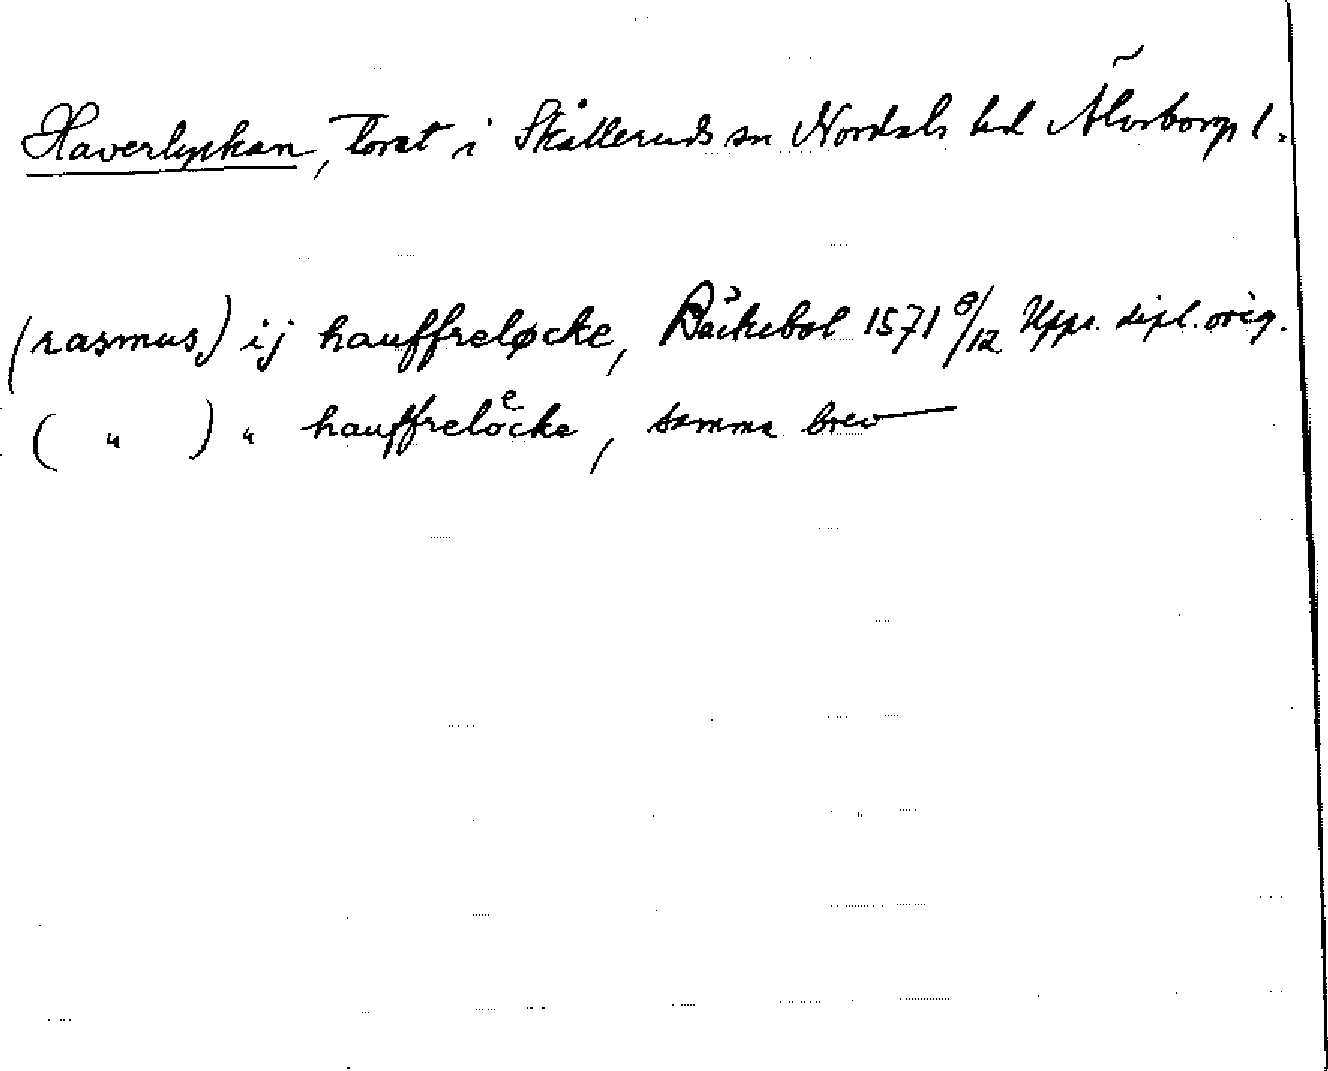 Haverlyckan, torst i Skålleruds sn Nordals hd Älvsborgs l.
(rasmus) ij hauffreløcke, Bäckebol 1571 8/12 Upps. dipl. orig.
( " ) " hauffreloͤcke, samma brev